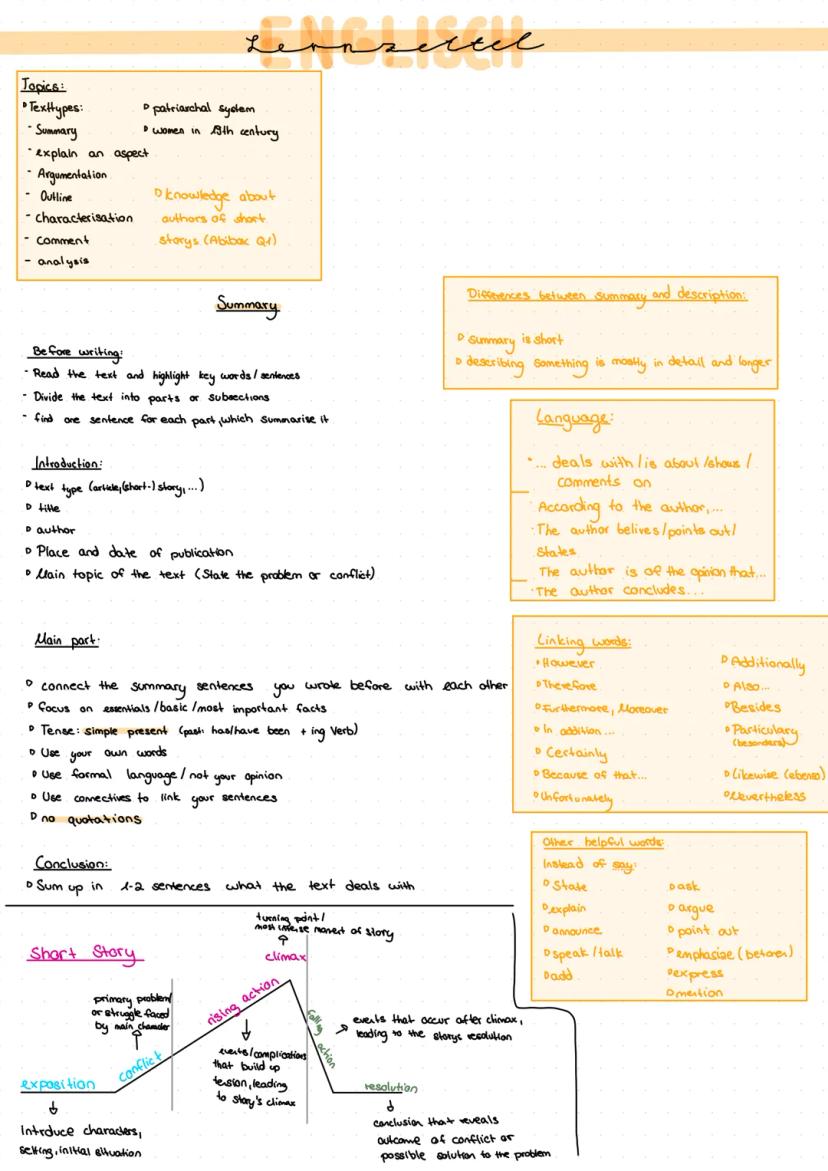 ENGLISCH
Lernzettel
Topics:
Texttypes:
- Summary
- explain an aspect
- Argumentation
- Outline
- characterisation
- comment
- analysis
patriarchal system
women in 19th century
knowledge about
authors of short
storys (Abibox Q1)
Summary
Before writing:
- Read the text and highlight key words/sentences
- Divide the text into parts or subsections
- find one sentence for each part, which summarise it
Introduction:
text type (article, (short-) story, ...)
title
author
Place and date of publication
Main topic of the text (State the problem or conflict)
Main part:
connect the summary sentences you wrote before with each other
focus on essentials/basic/most important facts
Tense: simple present (past: has/have been + ing Verb)
Use your own words
Use formal language/not your opinion
Use connectives to link your sentences
no quotations
Conclusion:
Sum up in 1-2 sentences what the text deals with
Differences between summary and description:
summary is short
describing something is mostly in detail and longer
Language:
... deals with/is about/shows/
comments on
According to the author,...
The author belives/points out/
States
The author is of the opinion that...
The author concludes...
Linking words:
However
Therefore
Furthermore, Moreover
In addition...
Certainly
Because of that...
Unfortunately
Additionally
Also...
Besides
Particulary
(besonders)
Likewise (ebenso)
Nevertheless
Other helpful words:
Instead of say:
State
explain
announce
speak/talk
add
ask
argue
point out
emphasize (betonen)
express
mention
Short Story
turning point/
most intense moment of story
climax
primary problem
or struggle faced
by main character
rising action
conflict
exposition
Introduce characters,
setting, initial situation
events/complications
that build up
tension, leading
to story's climax
falling action
events that occur after climax,
leading to the storys resolution
resolution
conclusion that reveals
outcome of conflict or
possible solution to the problem